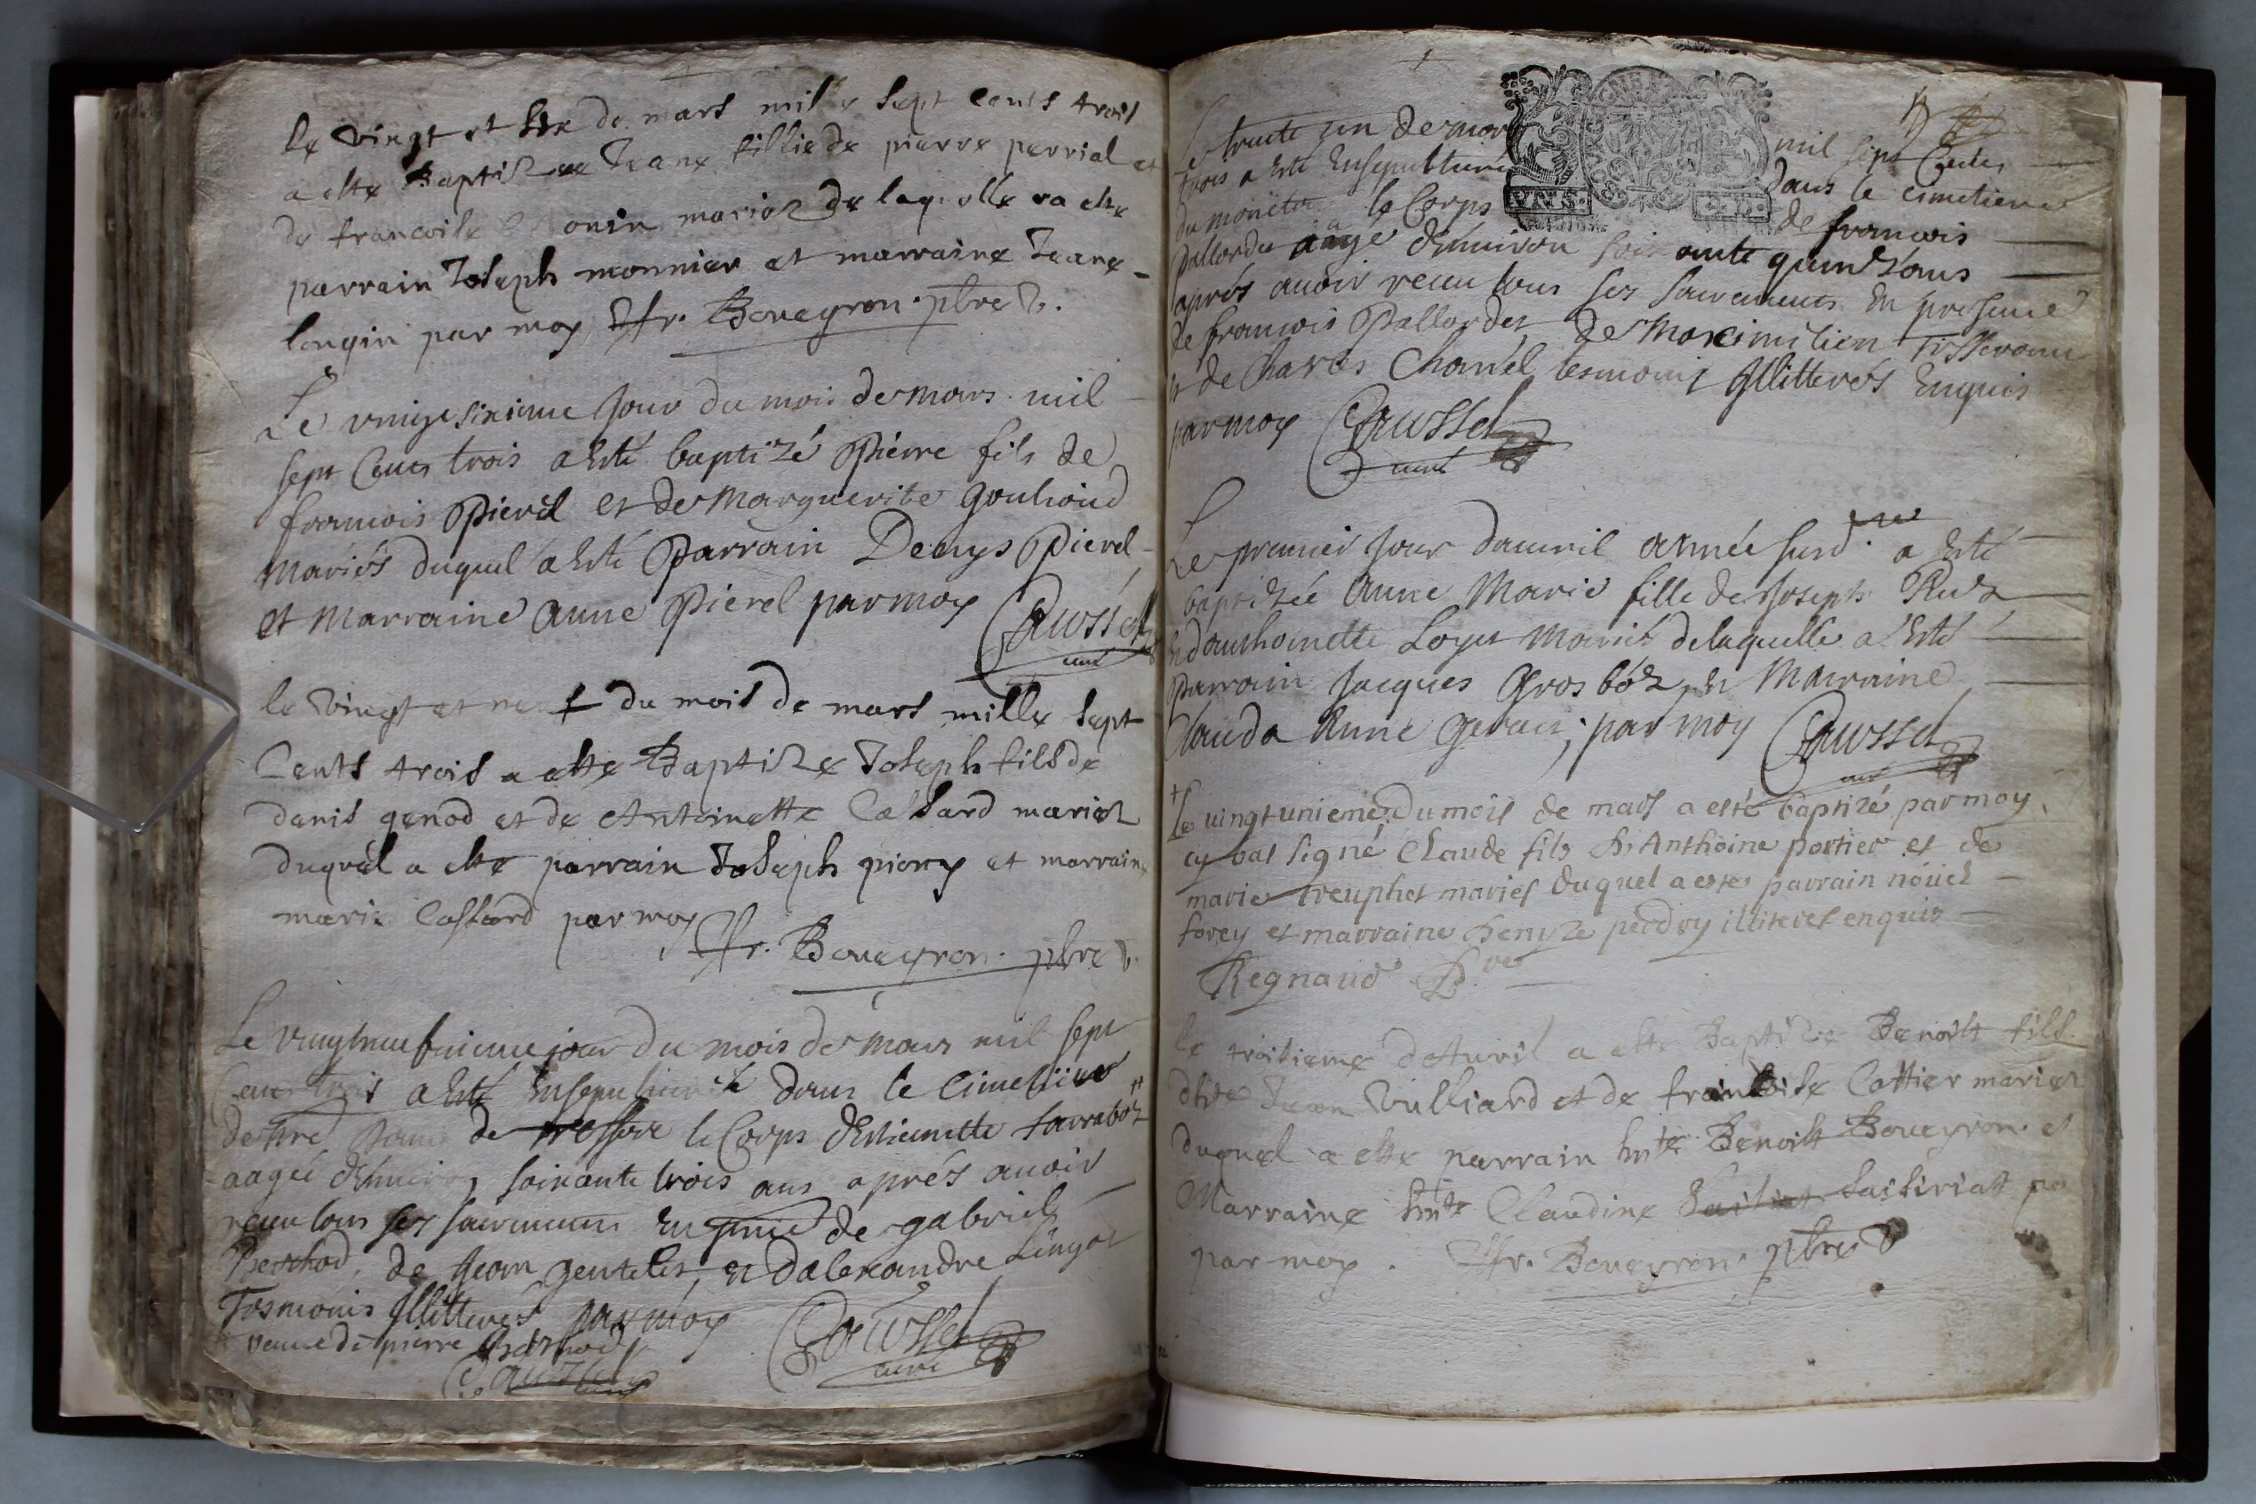 le vingt et six de mars mille sept cents trois
a este Baptisee Jeane fillie de pierre perrial et
de francoise onin maries de laquelle a este
parrain Joseph monnier et marraine Jeane
longin par moy, fr. Boueyron. pbre
Le vingt sixieme Jour du mois de mars mil
sept Cents trois a esté baptizé Pierre fils de
francois Pierel et de Marguerite
Mariés duquel a esté Parrain Denys Pierel
et Marraine Anne Pierel par moy Caussel
curé
le vingt et neuf du mois de mars mille sept
Cents trois a este Baptise Joseph fils de
denis genod et de Antoinette Cassard maries
duquel a este parrain Joseph piony et marraine
marie Cassard par moy
fr. Boueyron. pbre
Le vingt neufuieme jour du mois de Mars mil sept
Cens trois a esté Ensepulturée dans le Cimetiere
de nre dame de le Corps d'Estiennette
aagée d'Enuiron soixante trois ans aprés auoir
receu tous ses sacremens En pnce de gabriel
Berthod, de Jean gentelet, et d'alexandre
Tesmoins Illitterés par moy Caussel
curé
veuue de pierre
Caussel
Le trente un de mars mil sept Cents
trois a esté Ensepulturé dans le cimetiere
du le Corps de francois
Pallordet aagé d'Enuiron soixante quinz'ans
aprés auoir receu tous ses sacremens En presence
de francois Pallordet de Maximilien
et de Charles Chanel tesmoins Illitterés Enquis
par moy Caussel
curé
Le premier Jour d'auril année susd. a esté
baptizée Anne Marie fille de Joseph
et d'anthoinette Loyet Mariés de laquelle a Esté
Parrain Jacques Grosbóz et Marraine
Clauda Anne ; par moy Caussel
curé
Le vingt unieme du mois de mars a esté baptizé par moy
cy bas signé Claude fils d'Anthoine portier et de
marie treuphet mariés duquel a este parrain
forey et marraine denyze perdry illiteres enquis
Regnaud
le troisieme d'Auril a este Baptise Benoist fils
Jean Vulliard et de francoise Cottier maries
duquel a este parrain hnte Benoist Boueyron. et
Marraine hnte Claudine par
par moy. fr. Boueyron. pbre